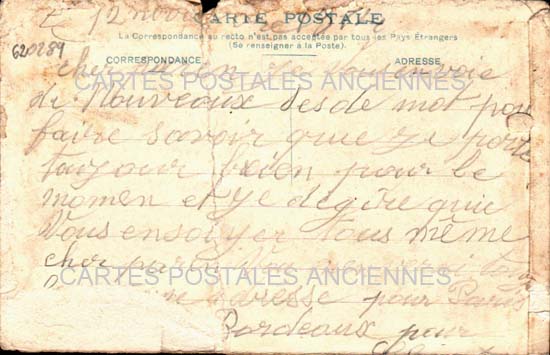 12
CARTE POSTALE
La Correspondance au recto n'est pas acceptée par tous les Pays Étrangers
(Se renseigner à la Poste).
620289
CORRESPONDANCE ADRESSE
cher envoie
CARTES POSTALES ANCIENNES
de Nouveaux ses de mot pou
faire savoir que ye porte
toujour beien pour le
momen et ye degire que
Vous en soyer tous même
cher
CARTES POSTALES ANCIENNES
adresse pour Paris
Bordeaux pour